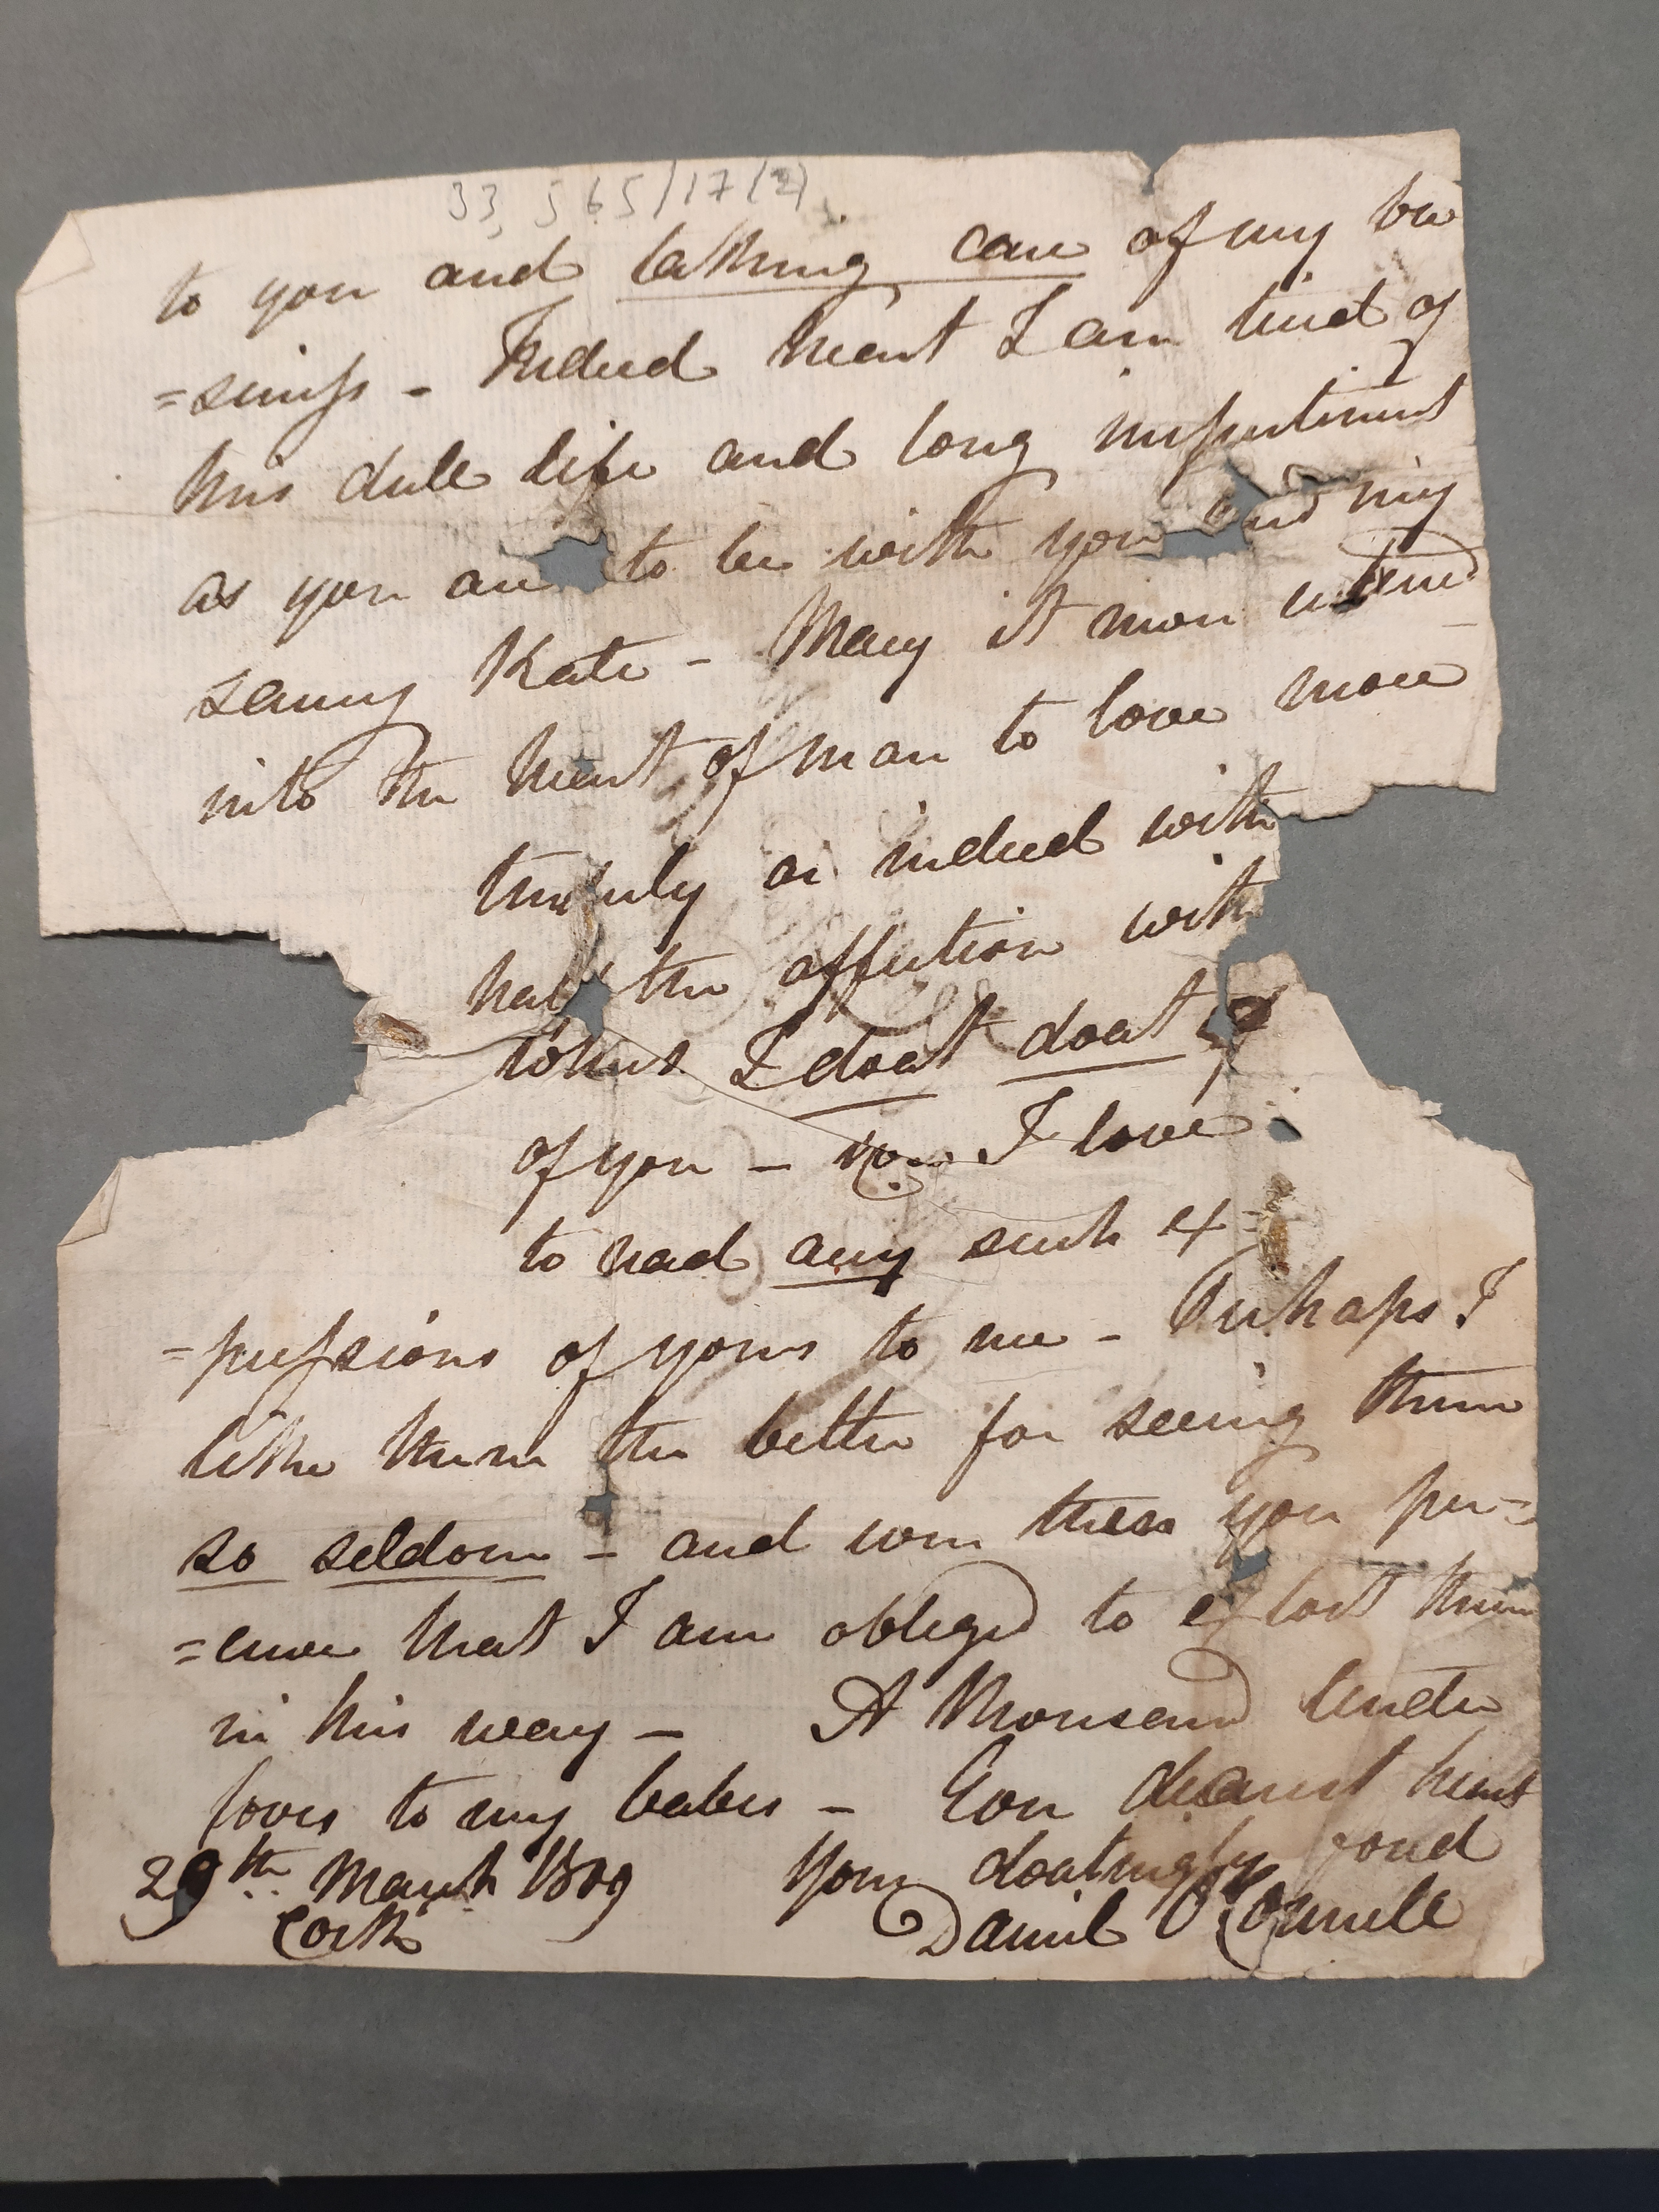 33,565/17(2)
to you and taking care of my bu
=siness - Indeed heart I am tired of
this dull life and long
as you are to be with you and my
saucy Kate - Mary it never entered
into the heart of man to love more
tenderly or indeed with
half the affection with
which I doat doat
of you - How I love
to read any such ex=
=pressions of yours to me - Perhaps I
like them the better for seeing them
so seldom - and even these you per=
=ceive that I am obliged to extort them
in this way - A thousand tender
loves to my babes - Ever dearest heart
29th March 1809 Your doatingly fond
Cork Daniel O'Connell